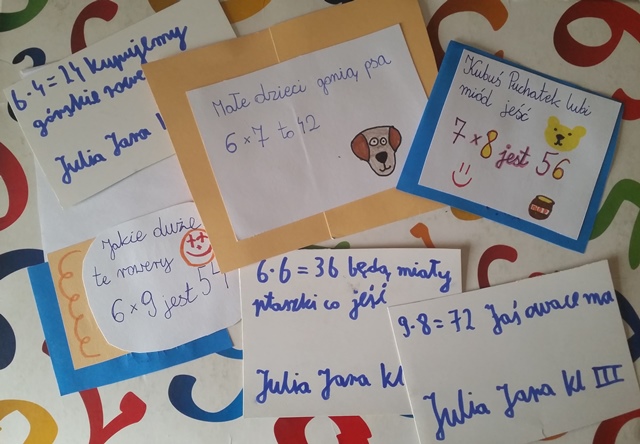 6·4=24 Kupujemy
górskie
Julia Jana
Małe dzieci gonią psa
6×7 to 42
Kubuś Puchatek lubi
miód jeść
7×8 jest 56
Jakie duże
te rowery
6×9 jest 54
6·6=36 będą miały
ptaszki co jeść
Julia Jana kl
9·8=72 Jaś owoce ma
Julia Jana kl III